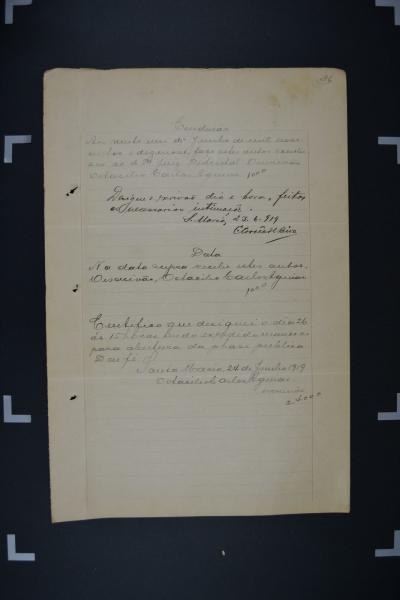 Conclusão
Aos vinte um de Junho de mil nove
centos e dezenove, faço estes autos conclu
sos ao Dr. Juiz Districtal. O escrivão
Octacilio Carlos Aguiar
1000
Designe o escrivão dia e hora, feitas
as necessarias intimações.
S. Maria, 23-6-919
Data
Na data supra recebi estes autos.
O escrivão, Octacilio Carlos Aguiar
1000
Certifico que designei o dia 26
ás 15 horas tendo expedido
para abertura da phase publica
Dou fé.
Santa Maria, 24 de Junho 1919
Octacilio Carlos Aguiar
escrivão